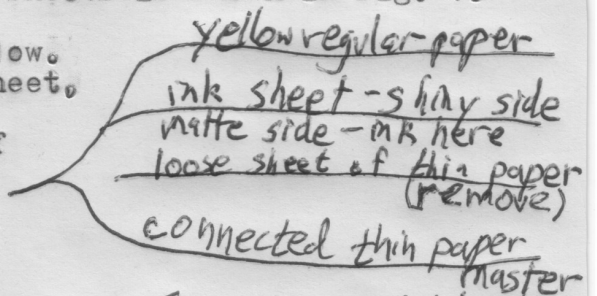 yellow regular paper
ow.
heet.
ink sheet - shiny side
matte side - ink here
loose sheet of thin paper
(remove)
connected thin paper
master